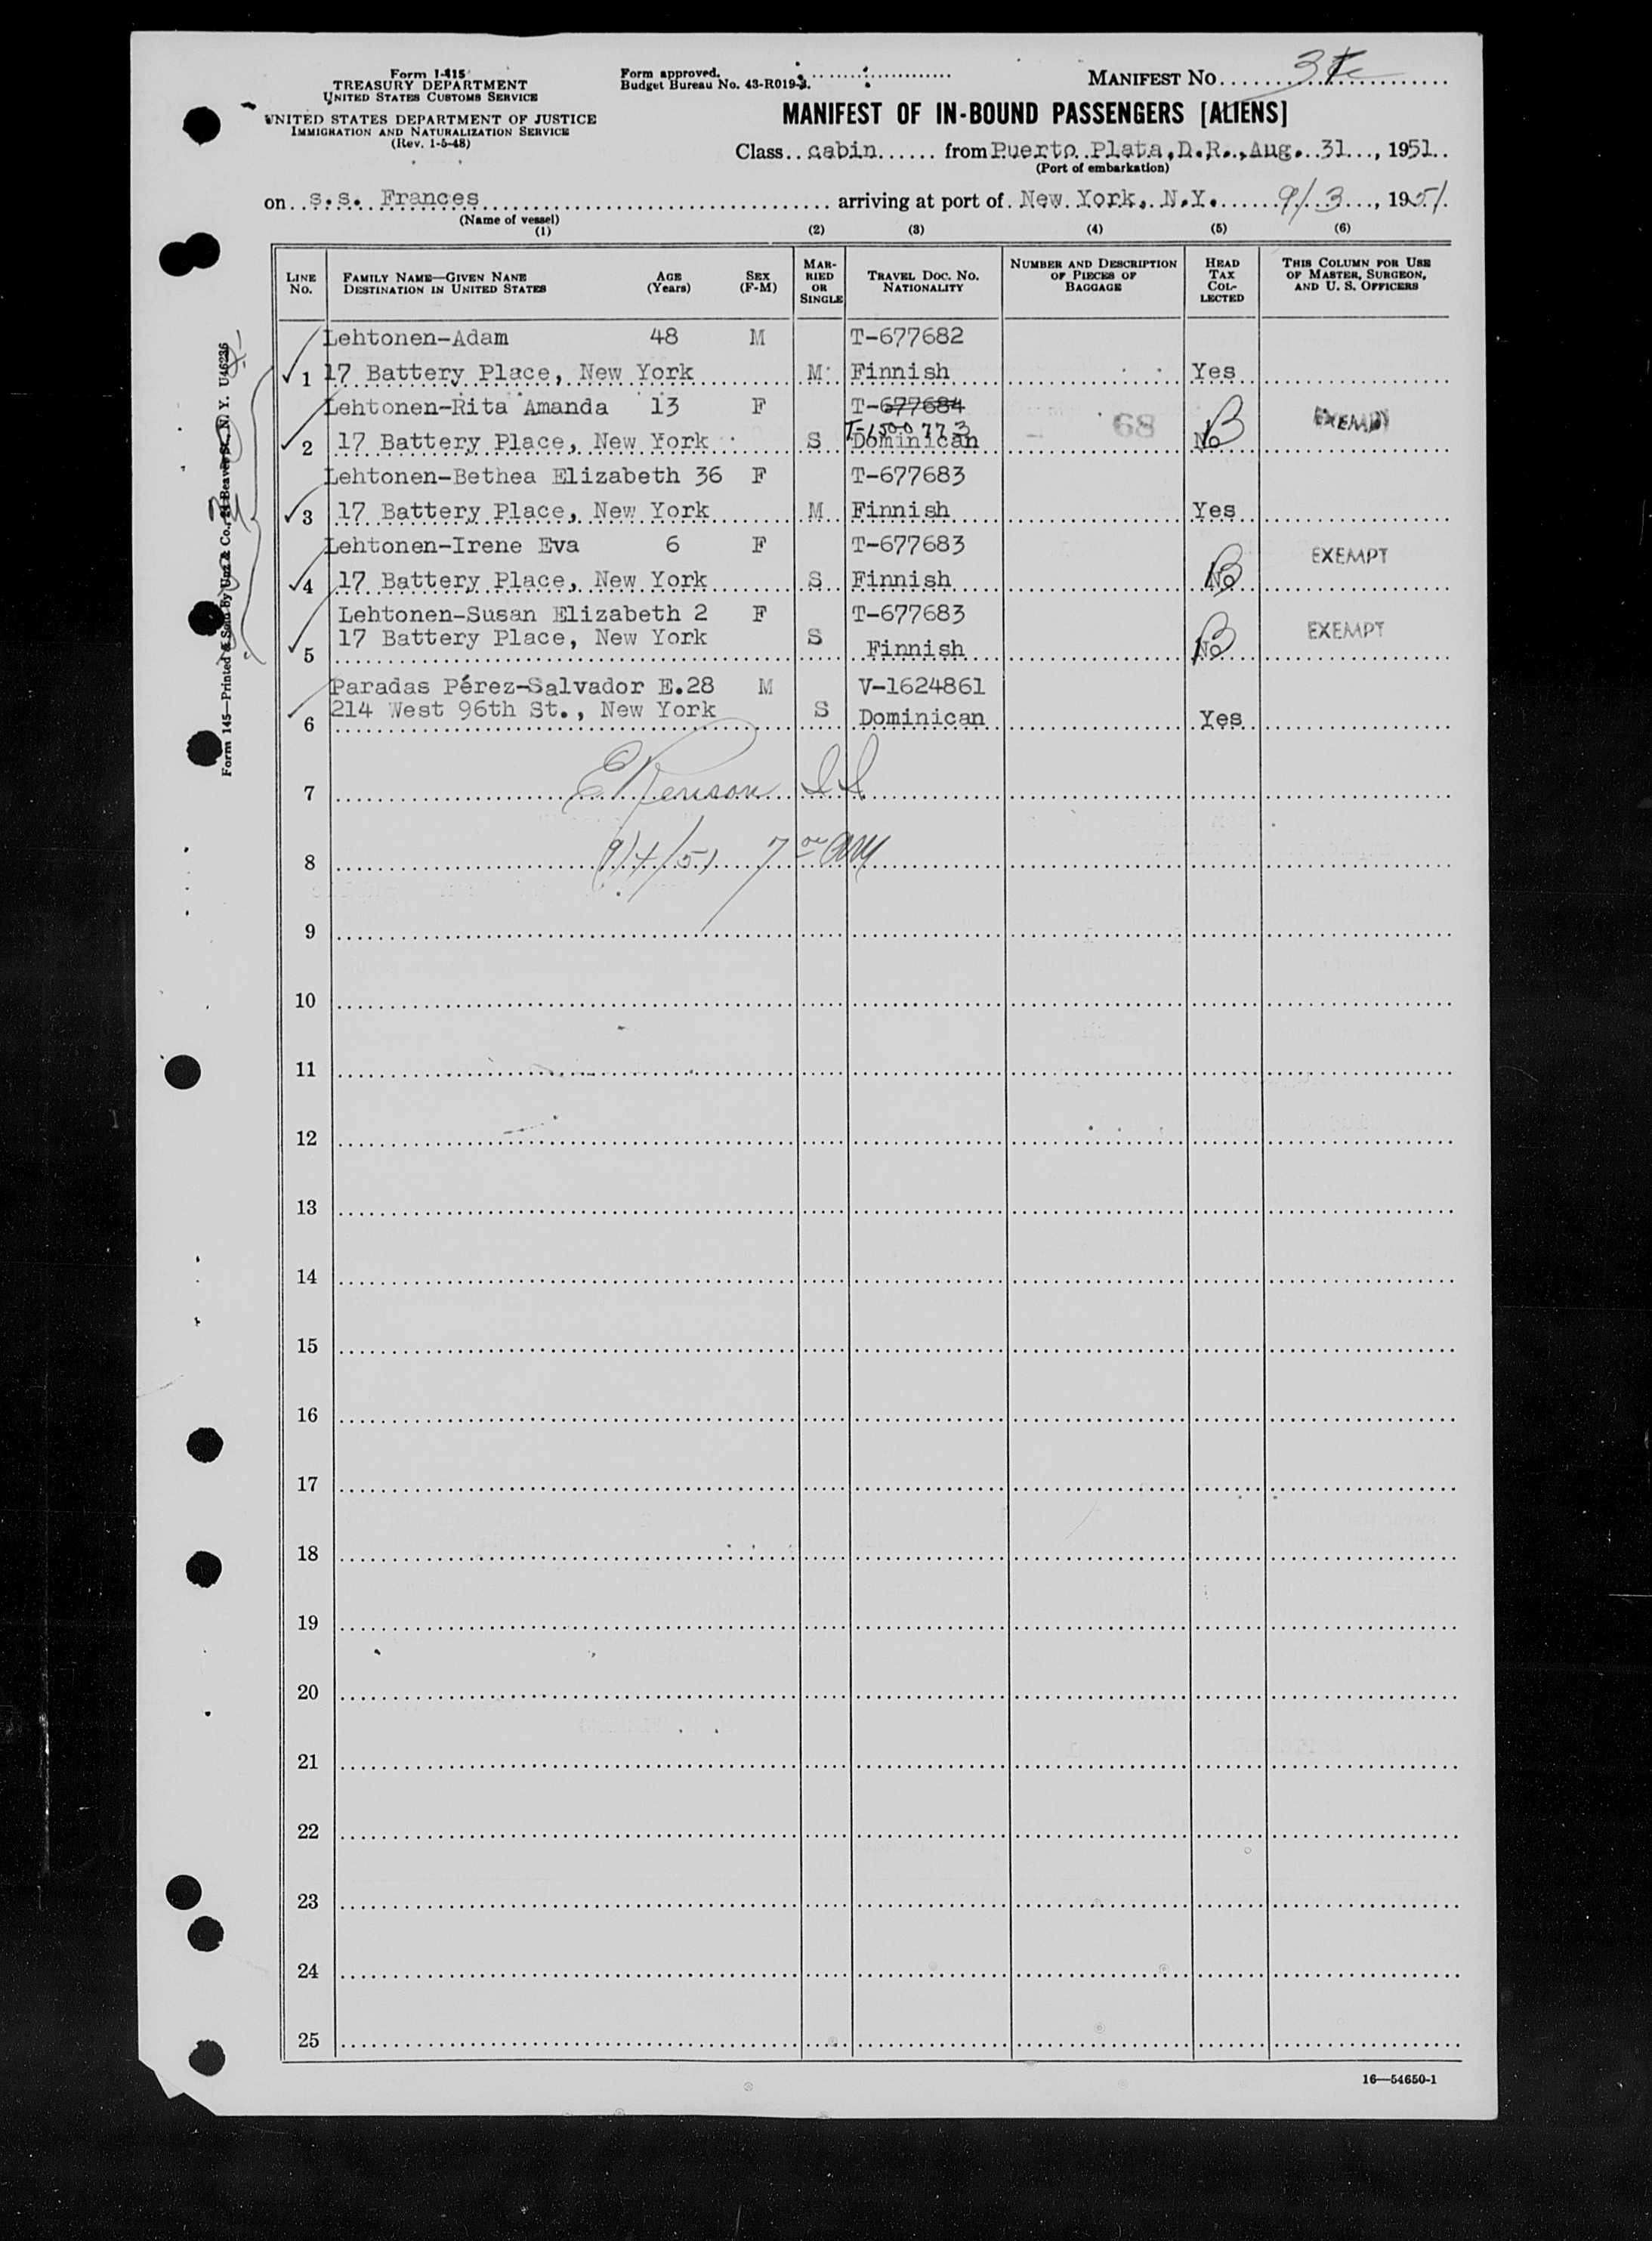 Form I-415
TREASURY DEPARTMENT
UNITED STATES CUSTOMS SERVICE
UNITED STATES DEPARTMENT OF JUSTICE
IMMIGRATION AND NATURALIZATION SERVICE
(Rev. 1-5-48)
Form approved.
Budget Bureau No. 43-R019-3.
MANIFEST NO. 3
MANIFEST OF IN-BOUND PASSENGERS [ALIENS]
Class cabin from Puerto Plata, D.R., Aug. 31, 1951
(Port of embarkation)
on s.s. Frances arriving at port of New York, N.Y. 9/3, 1951.
(Name of vessel)
(1) (2) (3) (4) (5) (6)
LINE NO. FAMILY NAME—GIVEN NAME DESTINATION IN UNITED STATES AGE (Years) SEX (F-M) MARRIED OR SINGLE TRAVEL DOC. NO. NATIONALITY NUMBER AND DESCRIPTION OF PIECES OF BAGGAGE HEAD TAX COLLECTED THIS COLUMN FOR USE OF MASTER, SURGEON, AND U. S. OFFICERS
Lehtonen-Adam 48 M T-677682
1 17 Battery Place, New York M Finnish Yes
Lehtonen-Rita Amanda 13 F T-677684
T-1500773 68 EXEMPT
2 17 Battery Place, New York S Dominican No
Lehtonen-Bethea Elizabeth 36 F T-677683
3 17 Battery Place, New York M Finnish Yes
Lehtonen-Irene Eva 6 F T-677683 EXEMPT
4 17 Battery Place, New York S Finnish No
Lehtonen-Susan Elizabeth 2 F T-677683 EXEMPT
5 17 Battery Place, New York S Finnish No
Paradas Pérez-Salvador E.28 M V-1624861
6 214 West 96th St., New York S Dominican Yes
7
8 9/4/51 7 00 AM
9
10
11
12
13
14
15
16
17
18
19
20
21
22
23
24
25
16—54650-1
Form 145—Printed & Sold By Unz & Co., 24 Beaver St., N. Y. U46236